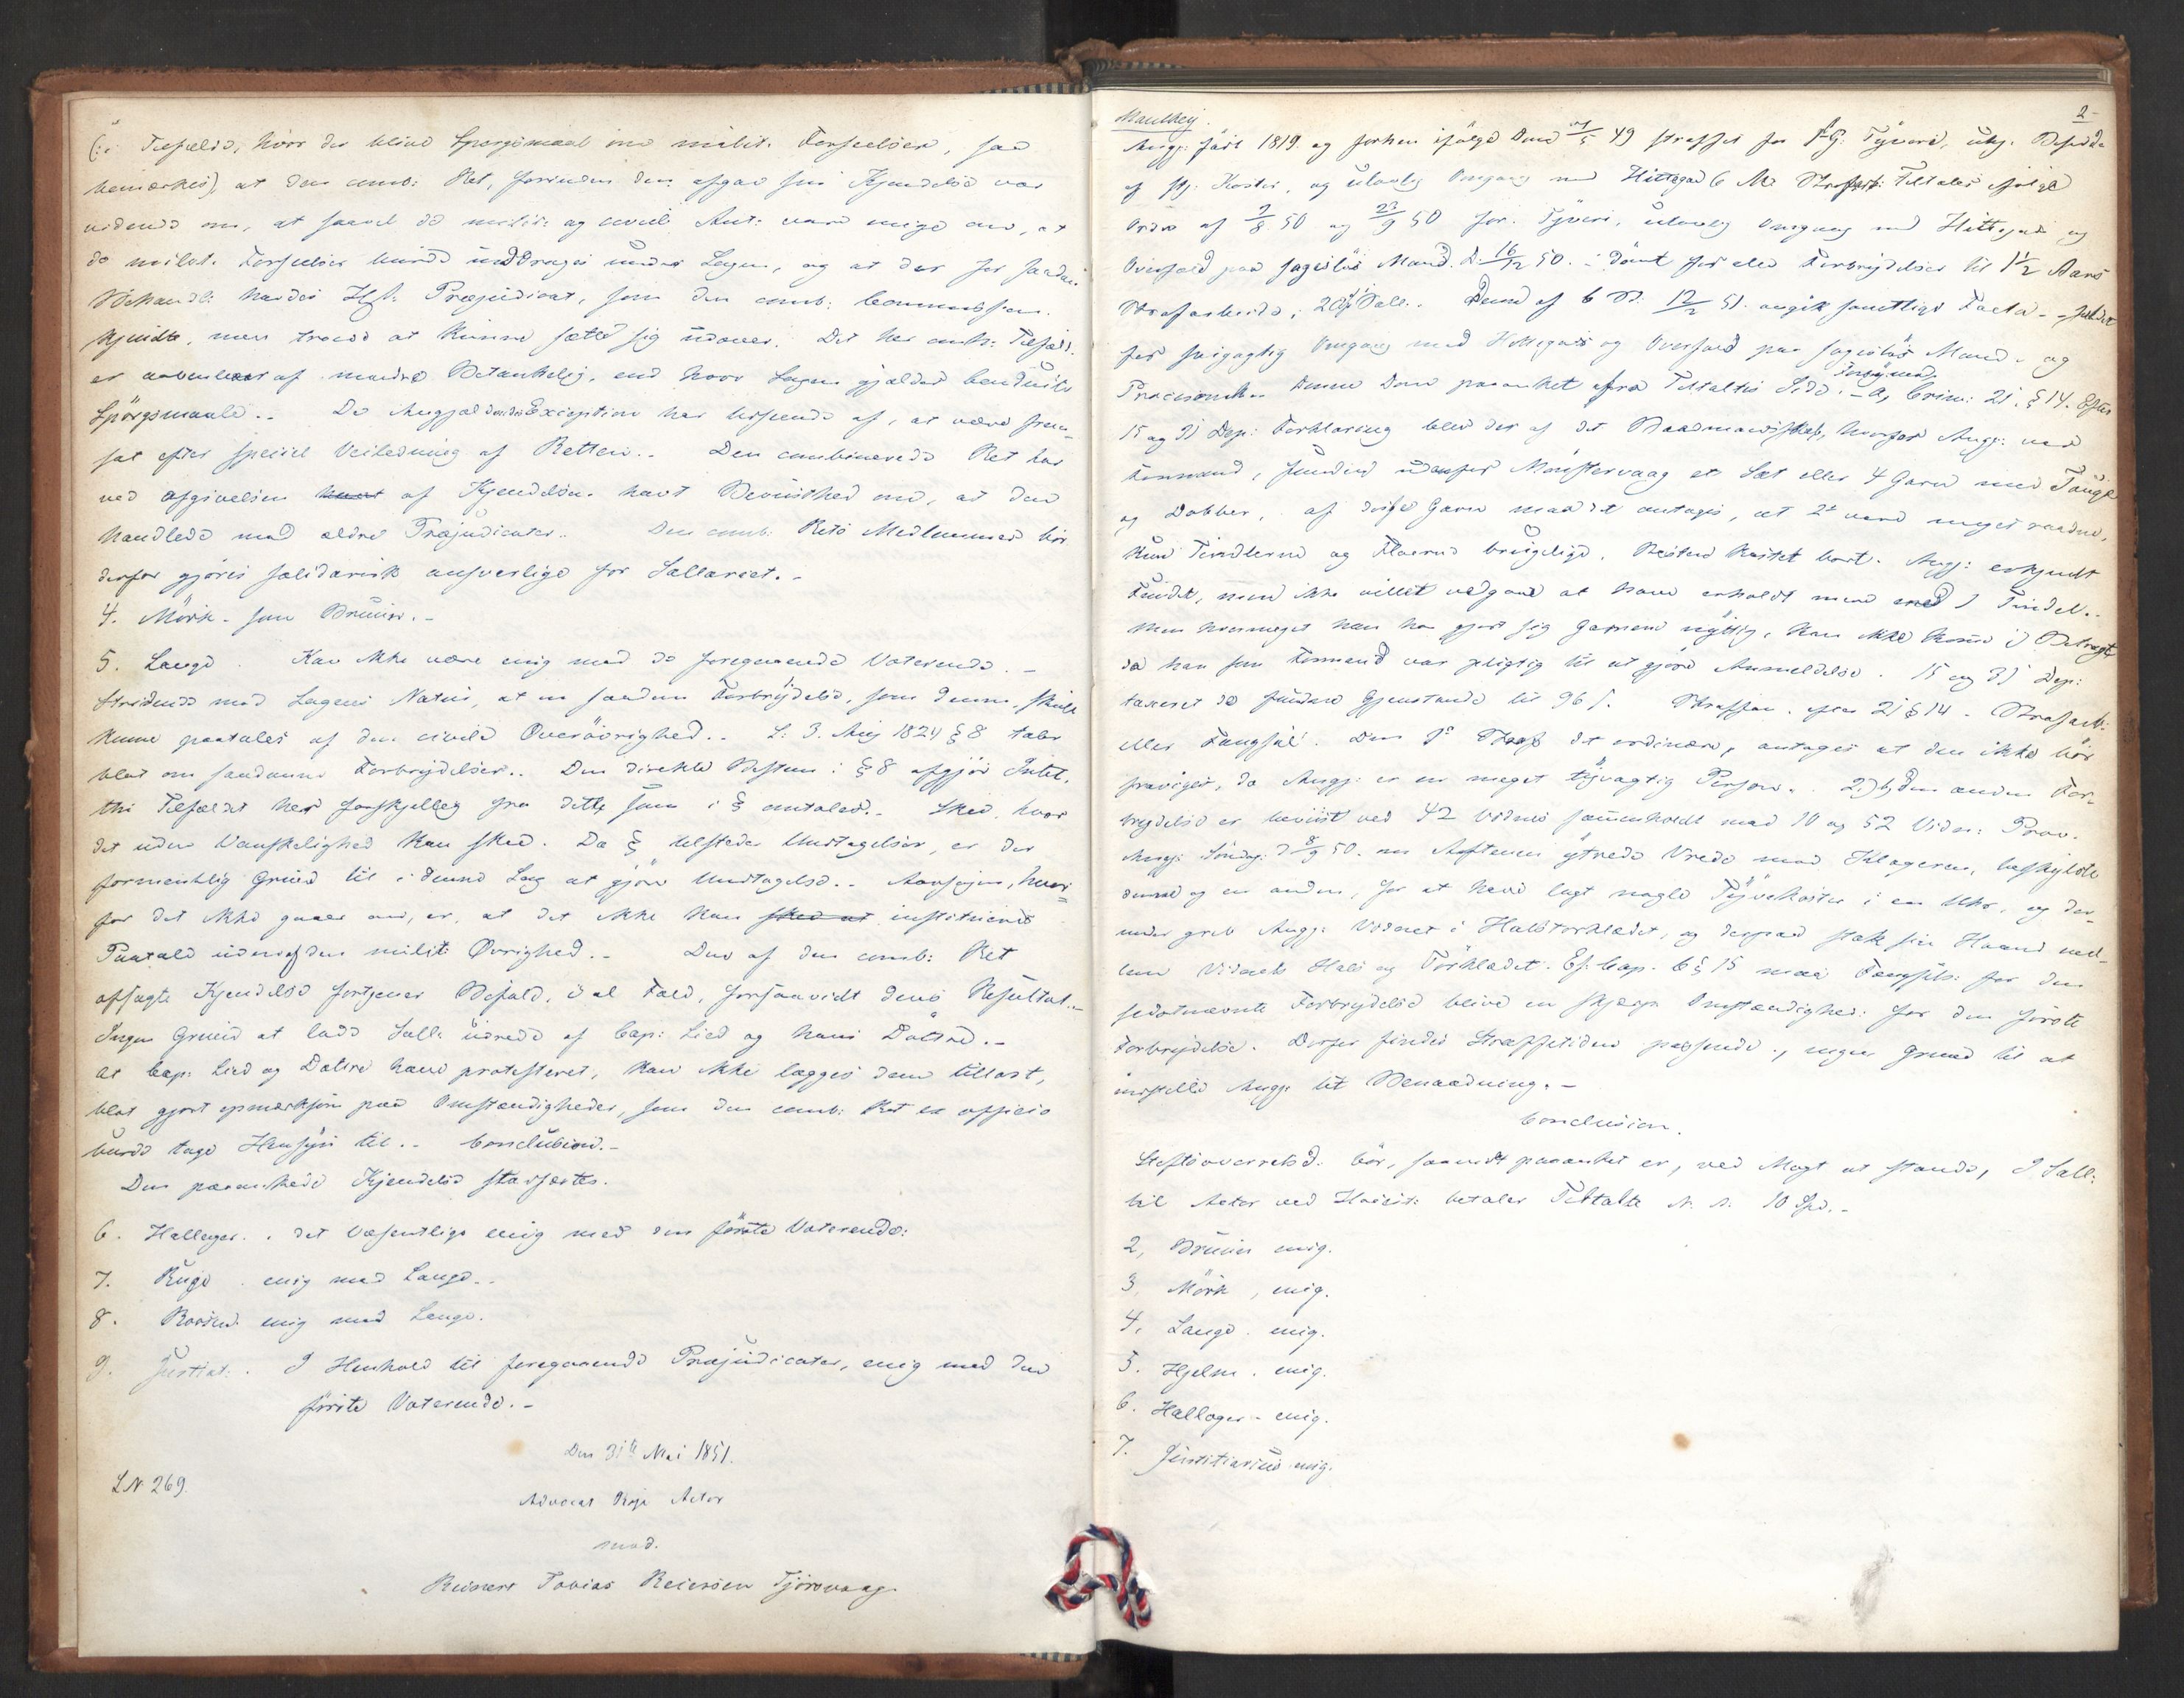 (: i Tilfælde, hvor der blive Spørgsmaal om milit. Forseelser, saa
bemærkes), at den comb: Ret, forinden den afgav sin Kjendelse var
vidende om, at saavel de milit: og civile Aut: vare enige om, at
de milit. Forseelser burde inddrages under Sagen, og at der for saadan
Behandl: havdes Hst. Præjudicat, som den comb: Commission
kjendte, men troede at kunne sætte sig udover. Det her omh: Tilfælde
er aabenbar af mindre Betænkelig, end hvor Sagen gjælder
Spørgsmaale.. De Angjældendes Exception har af, at være frem-
sat efter speciel Veiledning af Retten.. Den combinerede Ret har
ved afgivelsen af Kjendelsen havt Bevidsthed om, at den
handlede mod ældre Præjudicater.. Den comb. Rets Medlemmer bør
derfor gjøres solidarisk ansvarlige for Sallariet.-
4. Mörk - som Bruun.-
5. Lange. Kan ikke være enig med de foregaaende Voterende.-
Stridende mod Sagens Natur, at en saadan Forbrydelse, som denne, skulde
kunne paatales af den civile Overøvrighed.. L: 3. Aug 1824 § 8 taler
blot om saadanne Forbrydelser.. Den direkte Bestem: i § 8 afgjør Intet,
thi Tilfældet her forskjellig fra dette som i § omtales.. Skeer, hvor
det uden Vanskelighed kan skee. Da § tilsteder Undtagelser, er der
formentlig Grund til i denne Sag at gjøre Undtagelse.. Aarsagen, hvor-
for det ikke gaaer an, er, at det ikke kan skee at institueres
Paatale uden af den milit: Øvrighed.. Den af den comb: Ret
afsagte Kjendelse fortjener Bifald, i al Fald, forsaavidt dens Resultat.-
Ingen Grund at lade Sall: udrede af Cap: Lied og hans Døttre.-
At Cap: Lied og Døtre have protesteret, kan ikke lægges dem tillast,
blot gjort opmærksom paa Omstændigheder, som den comb: Ret ex officio
burde tage Hensyn til.. Conclusion.-
Den paaankede Kjendelse stadfæstes.
6. Hallager. i det Væsentlige enig med den første Voterende:
7. Rüge. enig med Lange..
8. enig med Lange.
9. Justit:. I Henhold til foregaaende Præjudicater, enig med den
første Voterende.-
Den 31te Mai 1851.
LN 269.
Advocat Actor
mod.
Reinert Tobias Reiersen Tjörsvaag.
2-
Manthey.
Angj: født 1819 og forhen ifølge Dom /5 49 straffet for 1ste G: Tyveri,
af stj: Koster, og ulovlig Omgang med Hittegods 6 Mr Strafarb: Tiltales ifølge
Ordre af 2/8 50 og 23/9 50 for. Tyveri, ulovlig Omgang med Hittegods og
Overfald paa sagesløs Mand. D. 16/12 50. dømt for alle Forbrydelser til 1 1/2 Aars
Strafarbeide, Sall.. Denne af St: 12/2 51. angik samtlige Facta
for svigagtig Omgang med Hittegods og Overfald paa sagesløs Mand. og
Processomk.. Denne Dom paaanket fra Tiltaltes Side.- a, Crim: 21. § 14. Efter
15 og 31 Dep: Forklaring blev der af det hvorfor Angj: var
Formand, fundet udenfor Mönstervaag et Sæt eller 4 Garn med Tauge
og Dobber, af disse Garn maa det antages, at 2de vare meget raadne,
kun Tindlerne og Floerne brugelige. Resten kastet bort. Angj: erkjendt
Fundet, men ikke villet vedgaae at have erholdt mere end 1 Tindel..
Men hvormeget han har gjort sig Garnene nyttig, kan ikke komme i Betragtn
da han som Formand var pligtig til at gjøre Anmeldelse. 15 og 31 Dep:
taxeret de fundne Gjenstande til 96 s. Straffen. efter 21 § 14. Strafarb:
eller Fængsel. Den 1ste Straf det ordinære, antages at den ikke bør
fraviges, da Angj: er en meget tyvagtig Person.. 2) b, den anden For-
brydelse er beviist ved 42 Vidnes sammenholdt med 10 og 52 Vidn: Prov.
Angj: Søndag: d 8/9 50. om Aftenen ytrede Vrede mod Klageren, beskyldte
denne og en anden, for at have lagt nogle Tyvekoster i en Uhr, og der-
under greb Angj: Vidnet i Halstørklædet, og derpaa stak sin Haand ned-
lem Vidnets Hals og Tørklædet. Ef: Cap. 6 § 15 maa Fængsels: for den
sidstnævnte Forbrydelse blive en skjærp: Omstændighed: for den første
Forbrydelse. Derfor findes Straffetiden passende., ingen Grund til at
indstille Angj: til Benaadning.-
Conclusion.
Stiftsoverretsd: bør, saavidt paaanket er, ved Magt at stande, I Sall:
til Actor ved Høiest: betaler Tiltalte N. N. 10 Spd.-
2, Bruun enig.
3, Mörk, enig.
4, Lange. enig.
5. Hjelm. enig.
6. Hallager - enig.
7. Justitiarius enig.